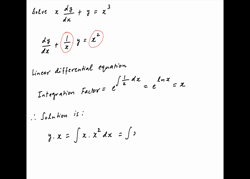 Solve x dy/dx + y = x³
dy/dx + 1/x y = x²
Linear differential equation
Integration Factor = e^∫1/x dx = e^ln x = x
∴ Solution is :
y. x = ∫ x. x² dx = ∫